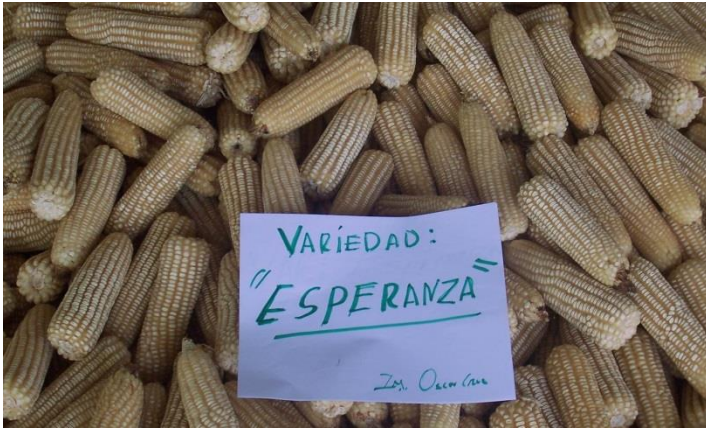 VARIEDAD:
"ESPERANZA"
Ing. Oscar Cruz